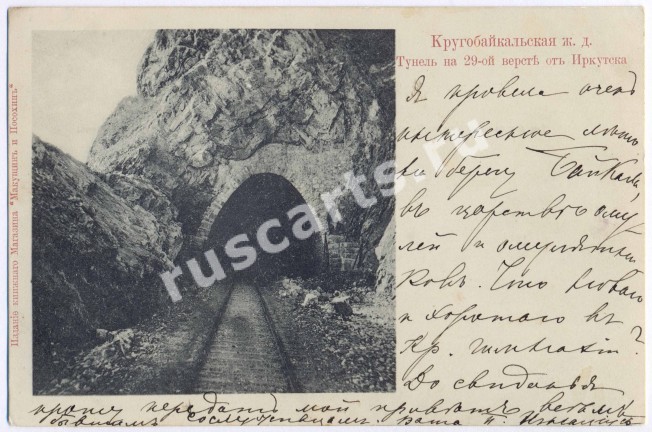 Кругобайкальская ж. д.
Тунель на 29-ой верстѣ отъ Иркутска
Изданіе книжнаго Магазина "Макушинъ и Посохинъ"
Я провела очень
интересное лѣто
на берегу Байкала,
въ царствѣ ому
лей и
ковъ. Что новаго
и хорошаго въ
Кр. гимназіи?
До свиданья
прошу передать мой привѣтъ всѣмъ
бывшимъ сослуживцамъ. Ваша
ruscarts.ru